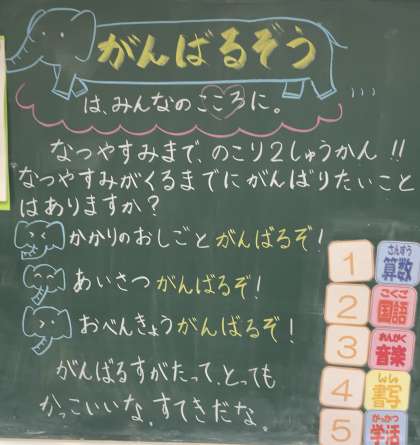 がんばるぞう
は、みんなのこころに。
なつやすみまで、のこり2しゅうかん!!
なつやすみがくるまでにがんばりたいこと
はありますか?
かかりのおしごとがんばるぞ!
あいさつがんばるぞ!
おべんきょうがんばるぞ!
がんばるすがたって、とっても
かっこいいな。すてきだな。
1 さんすう 算数
2 こくご 国語
3 おんがく 音楽
4 しょしゃ 書写
5 がっかつ 学活